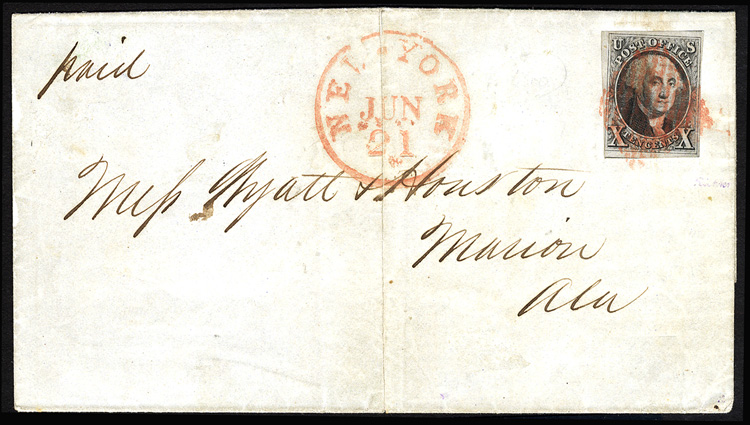 paid
NEW-YORK
JUN
21
U S
POST OFFICE
X TEN CENTS X
Mess Wyatt & Houston
Marion
Ala